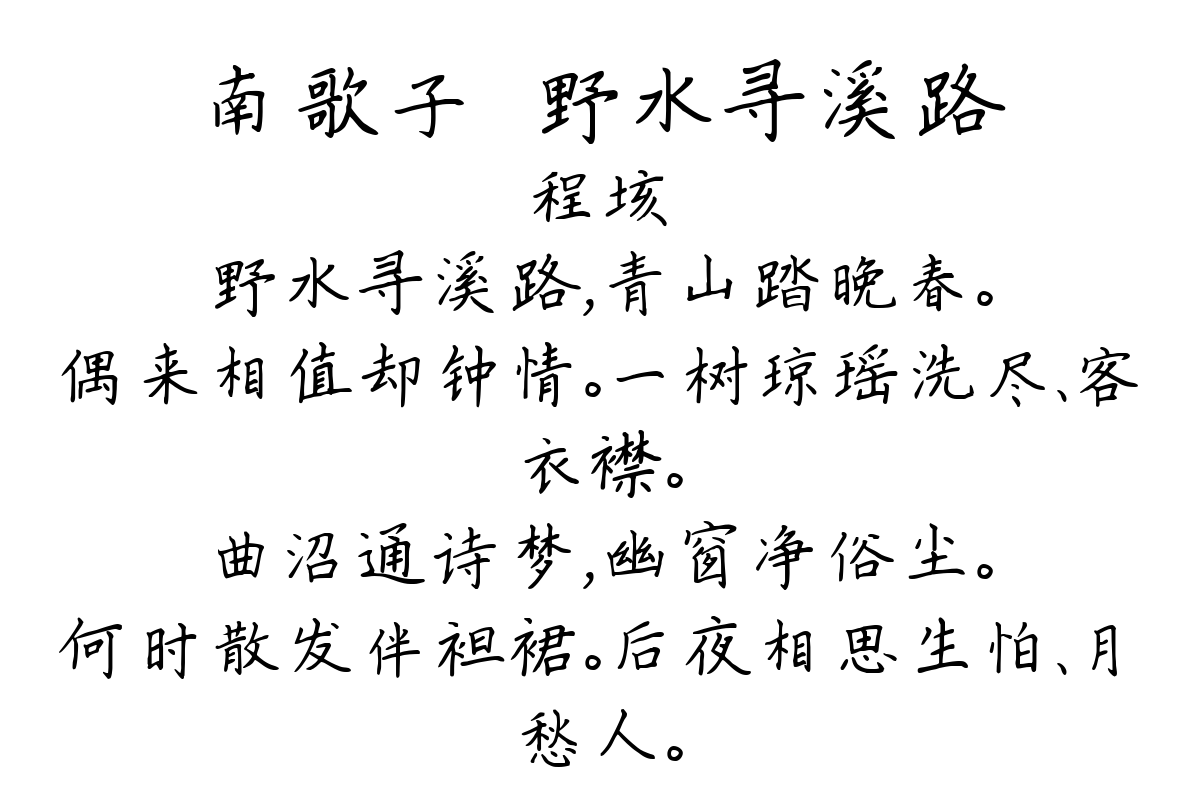 南歌子 野水寻溪路
程垓
野水寻溪路,青山踏晚春。
偶来相值却钟情。一树琼瑶洗尽、客
衣襟。
曲沼通诗梦,幽窗净俗尘。
何时散发伴袒裙。后夜相思生怕、月
愁人。